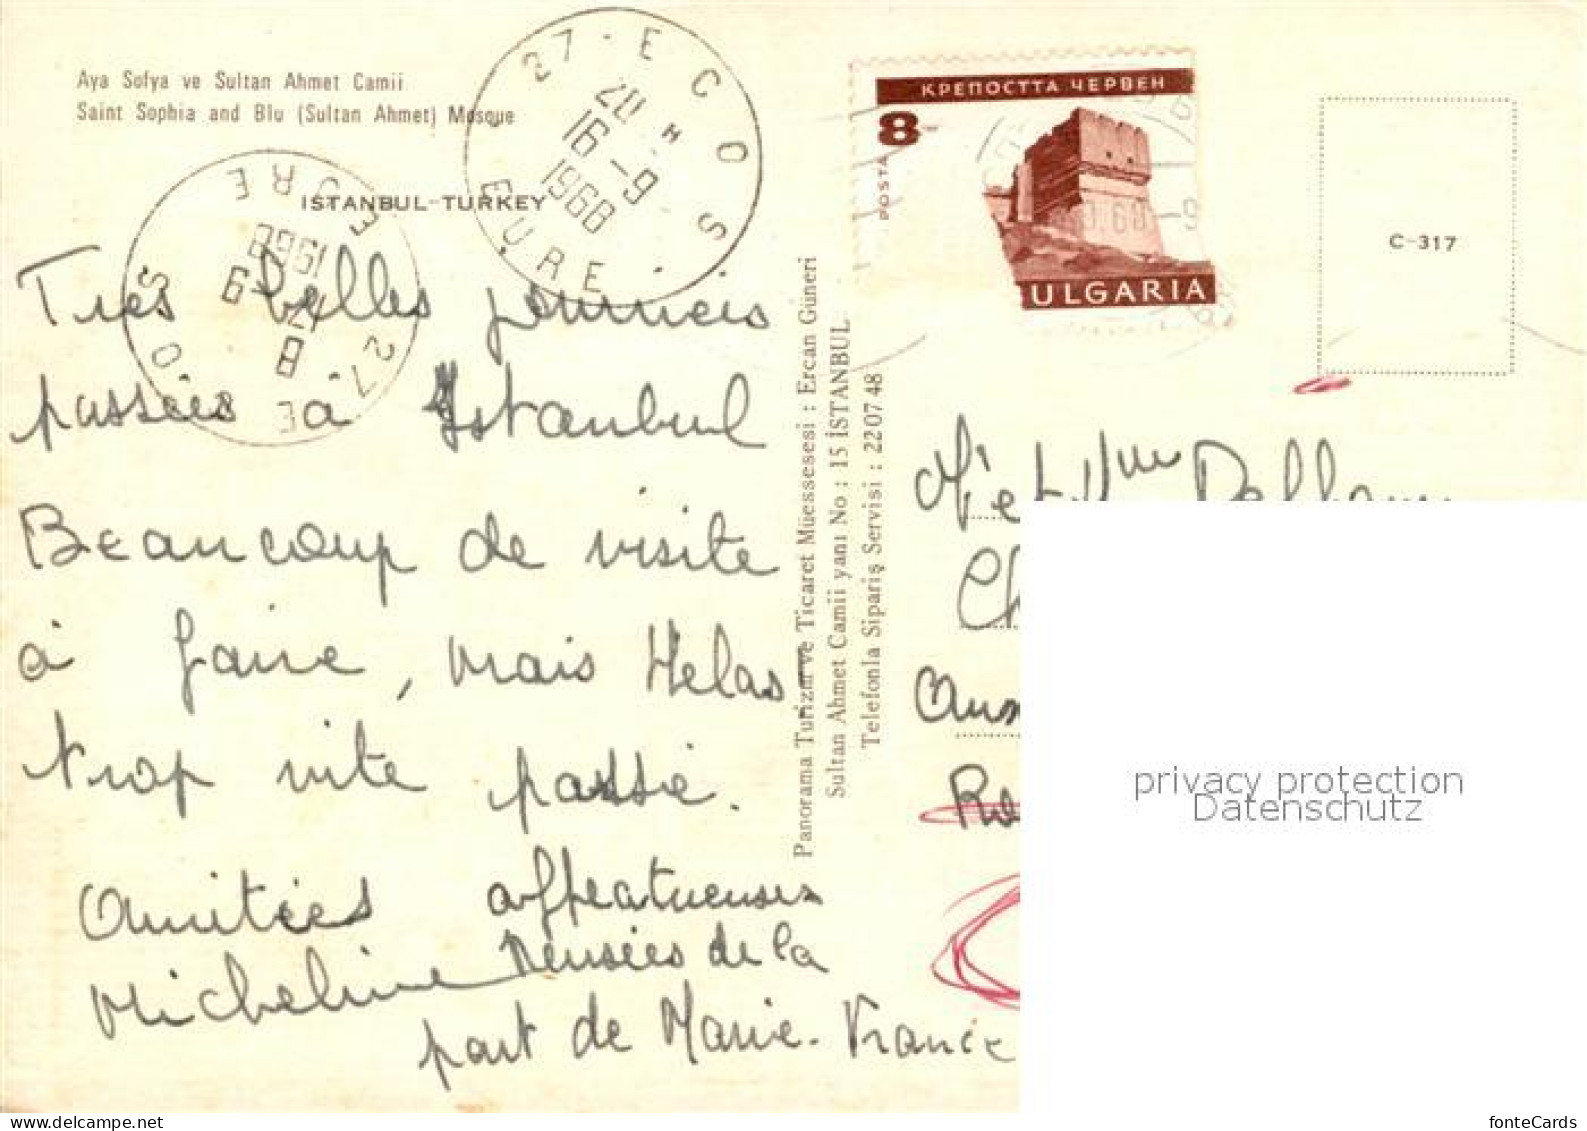 Aya Sofya ve Sultan Ahmet Camii
Saint Sophia and Blu (Sultan Ahmet) Mosque
ISTANBUL-TURKEY
27 - ECOS
20 H
16 -9
1968
EURE
27 E OS
8
17 -9
1968
EURE
Très belles journeis
passées à Istanbul
Beaucoup de visite
à faire, mais Helas
trop vite passé.
Amitiés affectueuses
Micheline Pensées de la
part de Marie-France
Panorama Turizm ve Ticaret Müessesesi : Ercan Güneri
Sultan Ahmet Camii yanı No : 15 İSTANBUL
Telefonla Sipariş Servisi : 22 07 48
КРЕПОСТТА ЧЕРВЕН
8
POSTA
ULGARIA
C-317
M et Mme
Ch
privacy protection
Datenschutz
fonteCards